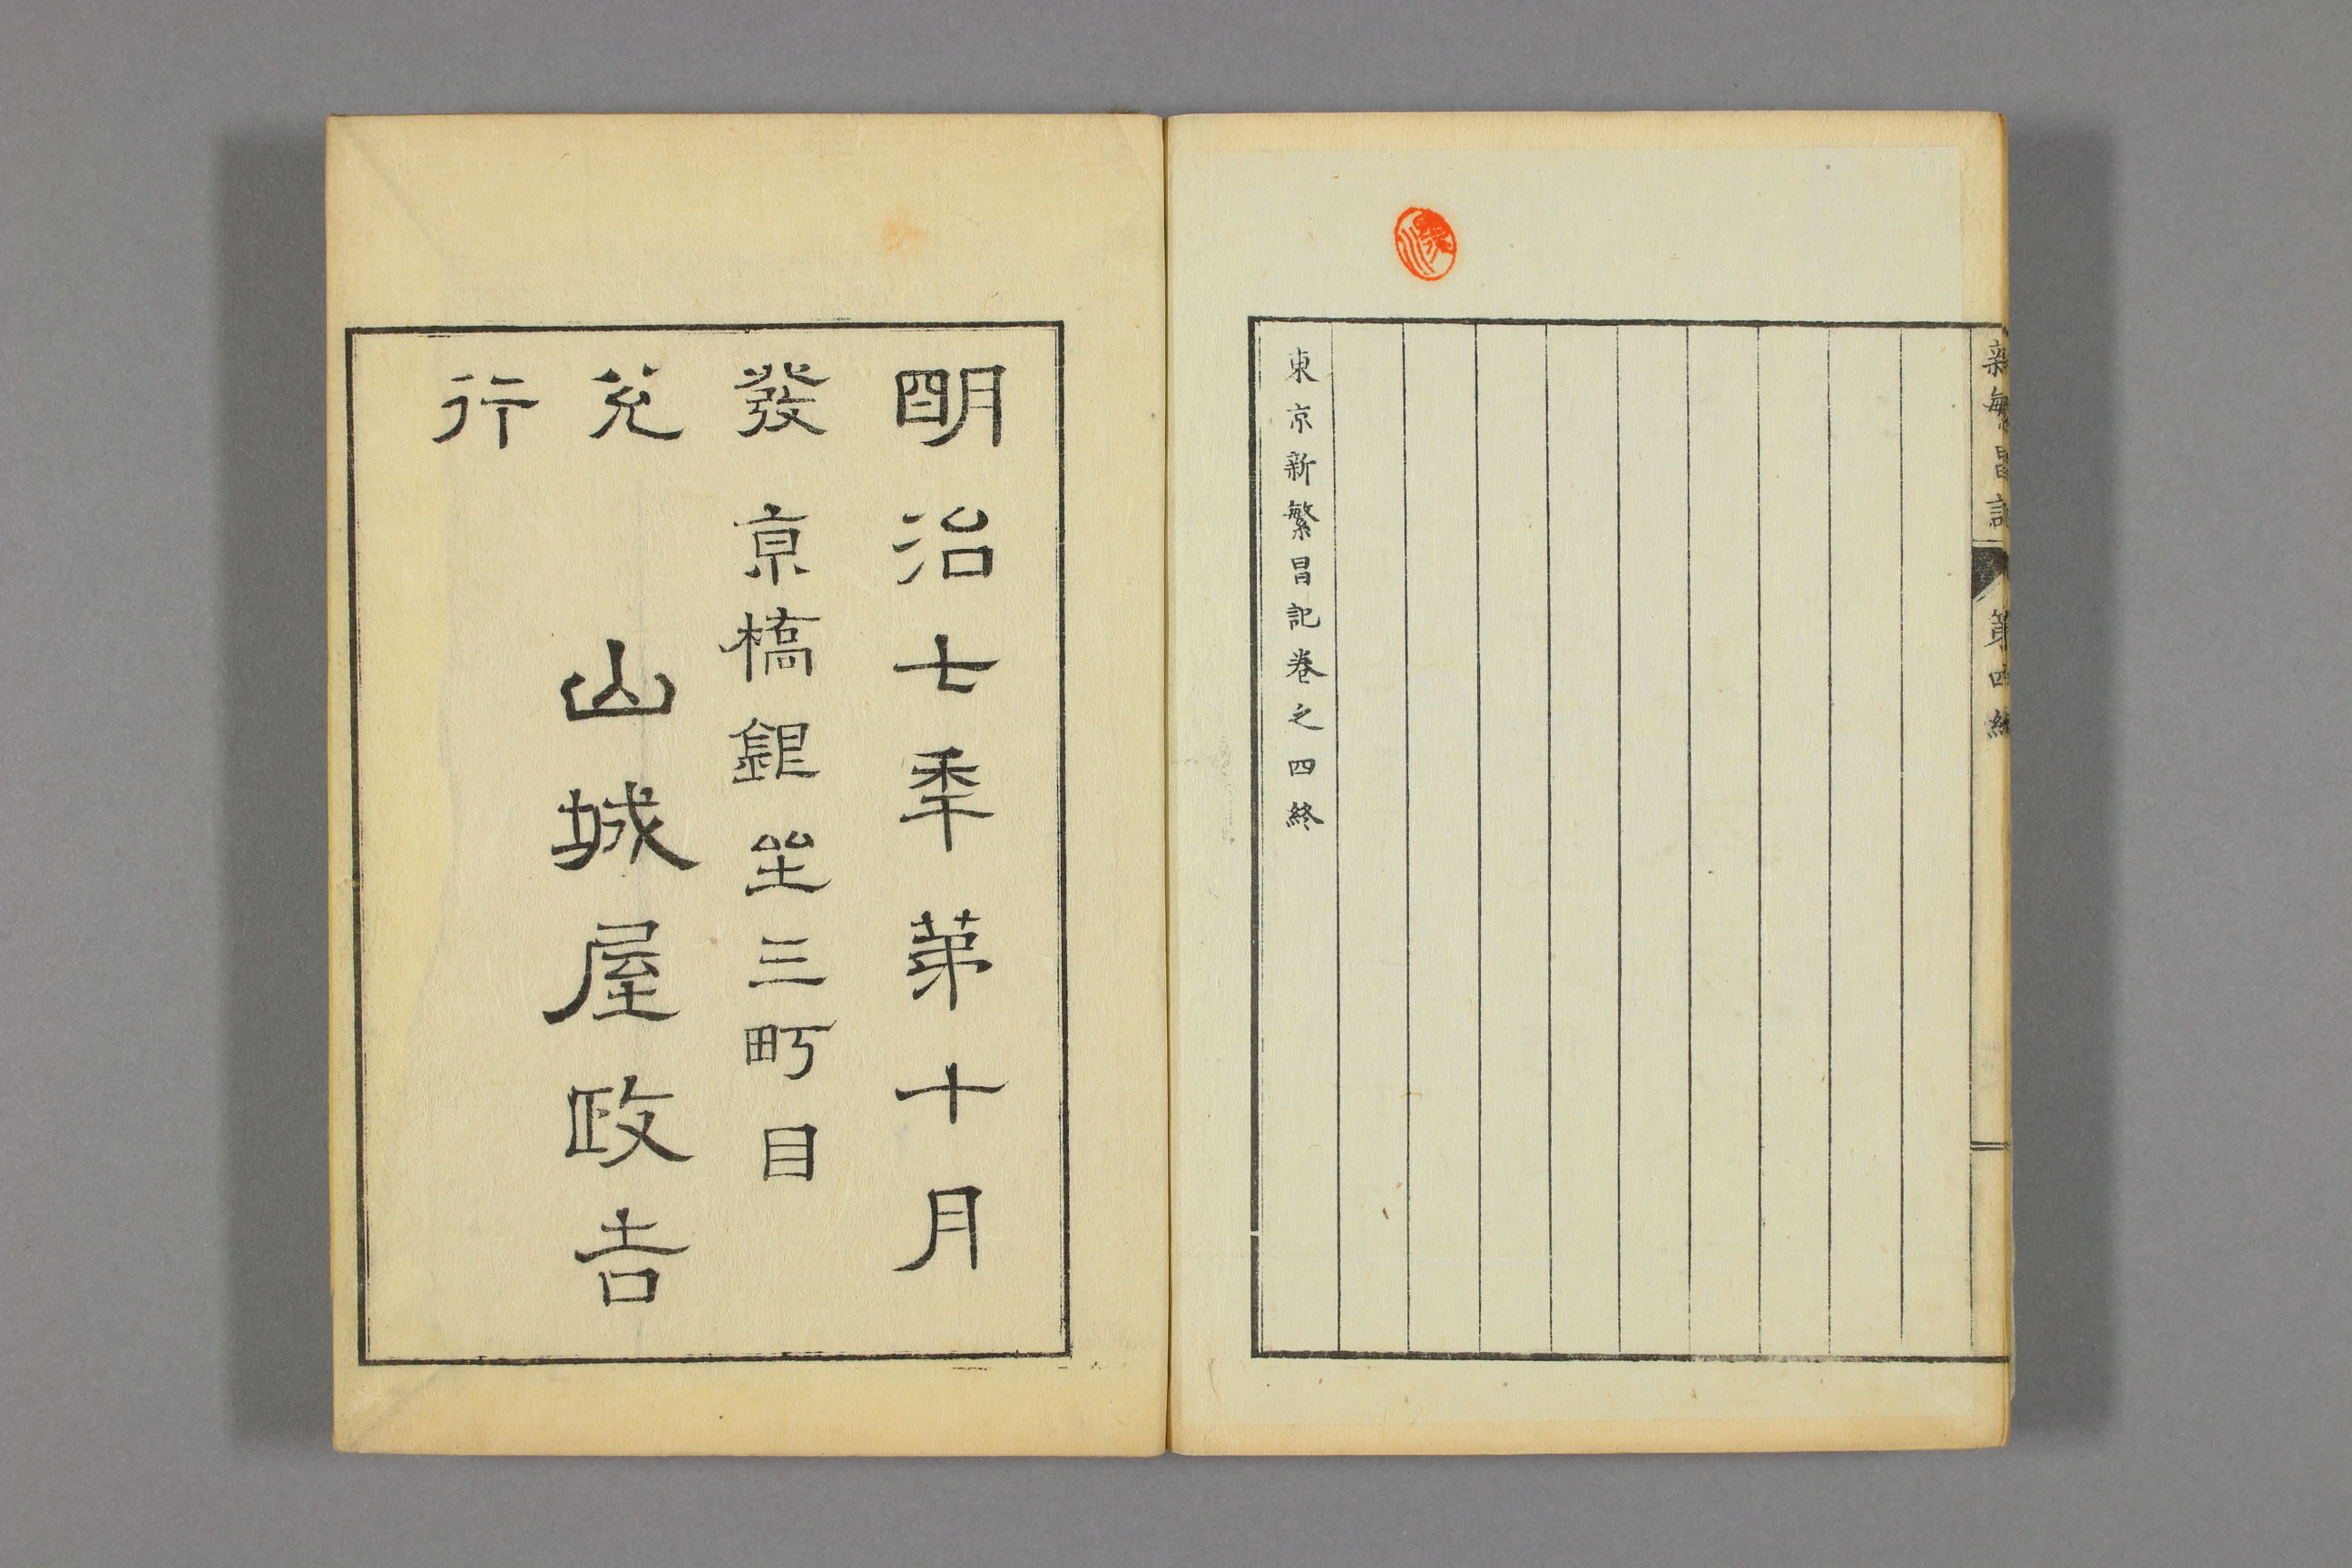 新繁昌記 第四編
東京新繁昌記卷之四終
明治七季第十月
發兌行
京橋銀坐三町目
山城屋政吉